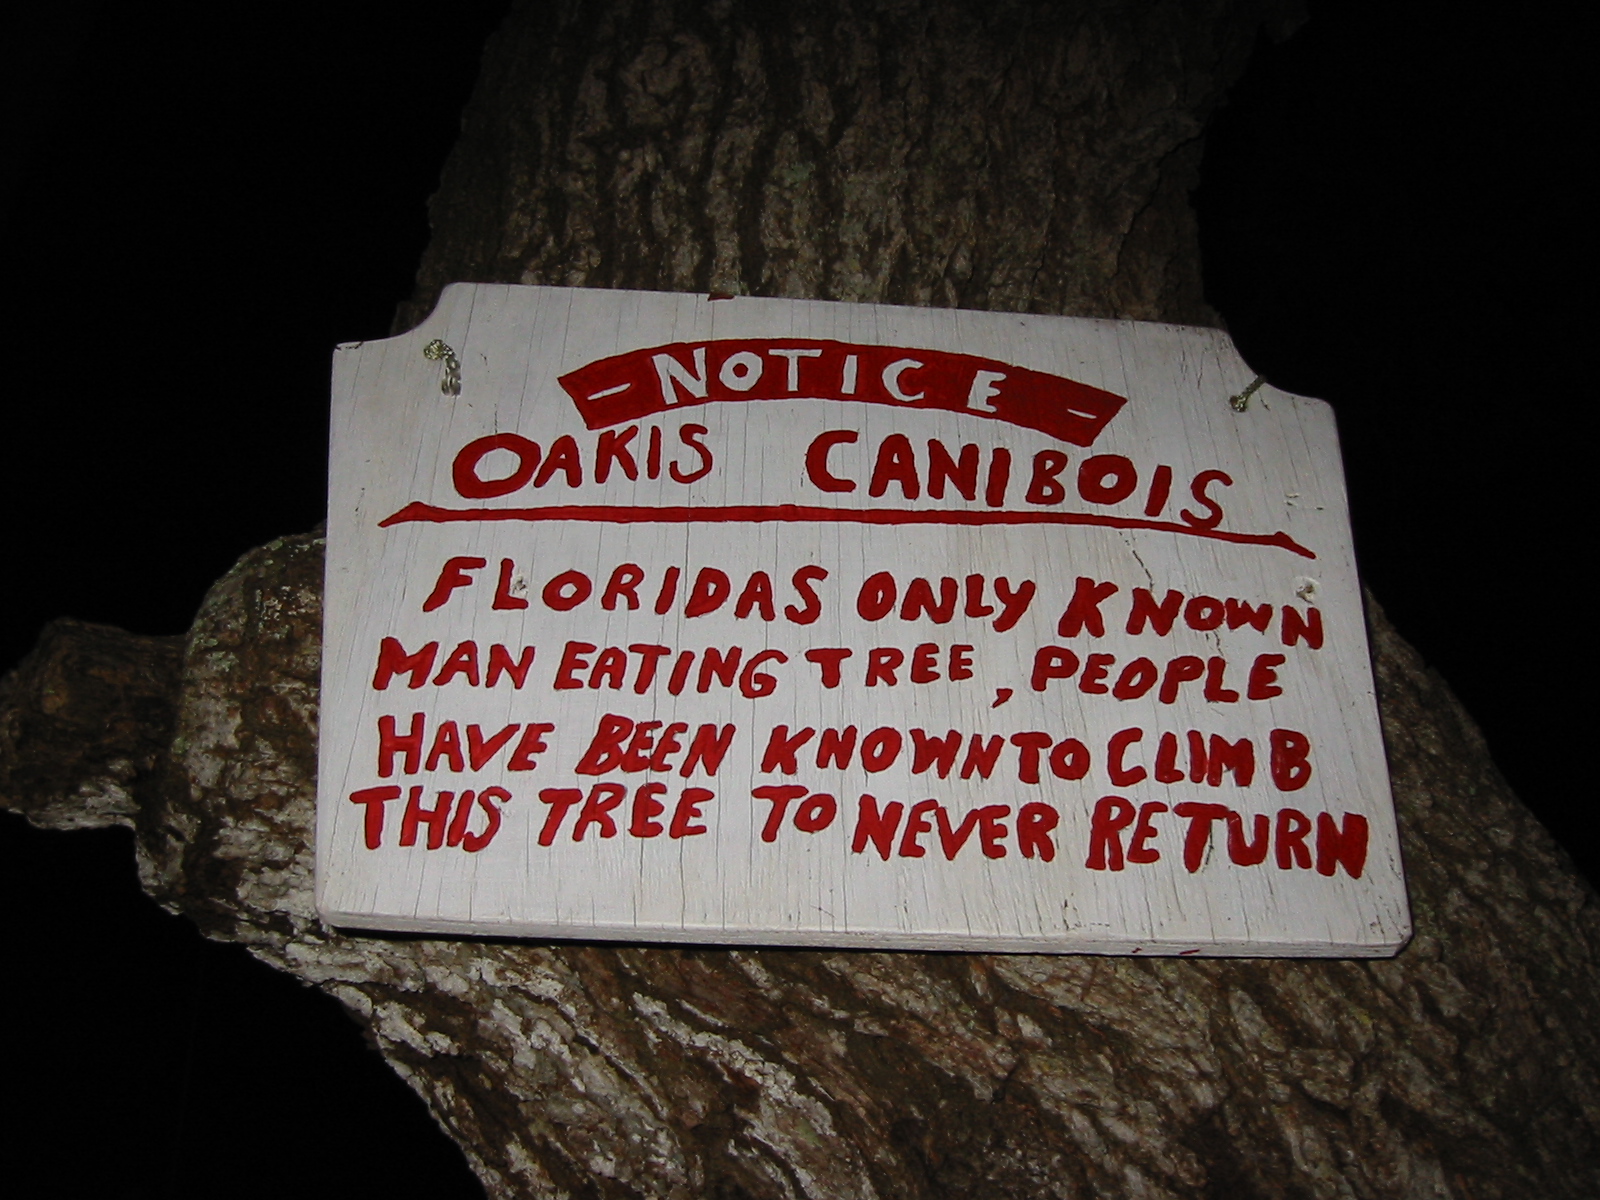 - NOTICE -
OAKIS CANIBOIS
FLORIDAS ONLY KNOWN
MAN EATING TREE, PEOPLE
HAVE BEEN KNOWN TO CLIMB
THIS TREE TO NEVER RETURN